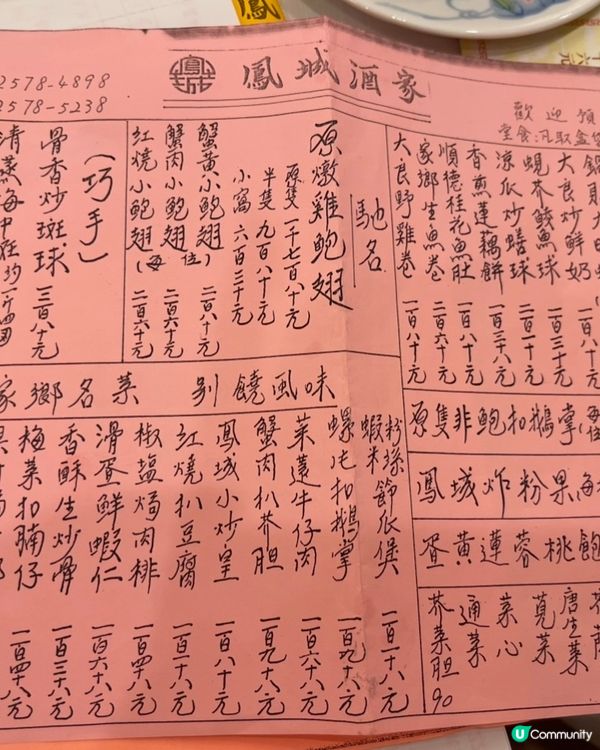 2578-4898
2578-5238
鳳城酒家
歡迎預
堂食.汎取盒
馳名
原燉雞鮑翅
原隻一千七百八十元
半隻九百八十元
小窩六百三十元
蟹黃小鮑翅 二百八十元
蟹肉小鮑翅(每位) 二百六十元
紅燒小鮑翅 二百六十元
(巧手)
骨香炒斑球 三百八十元
清蒸海中斑
大良炒鮮奶
蜆芥鯪魚球 一百三十元
涼瓜炒蟮球
香煎蓮藕餅 一百三十八元
順德桂花魚肚 一百八十元
家鄉生魚卷 二百六十元
大良野雞卷 一百八十元
家鄉名菜 別饒風味
粉絲蝦米節瓜煲 一百一十八元
螺片扣鵝掌 一百九十八元
菜蓮牛仔肉 一百六十八元
蟹肉扒芥胆 一百九十八元
鳳城小炒皇 一百八十元
紅燒扒豆腐 一百一十八元
椒塩焗肉排 一百四十八元
滑蛋鮮蝦仁 一百六十八元
香酥生炒骨 一百三十八元
梅菜扣腩仔 一百四十八元
原隻非鮑扣鵝掌(每位
鳳城炸粉果每
蛋黃蓮蓉桃飽
唐生菜
莧菜
菜心
通菜
芥菜胆 90
U Community